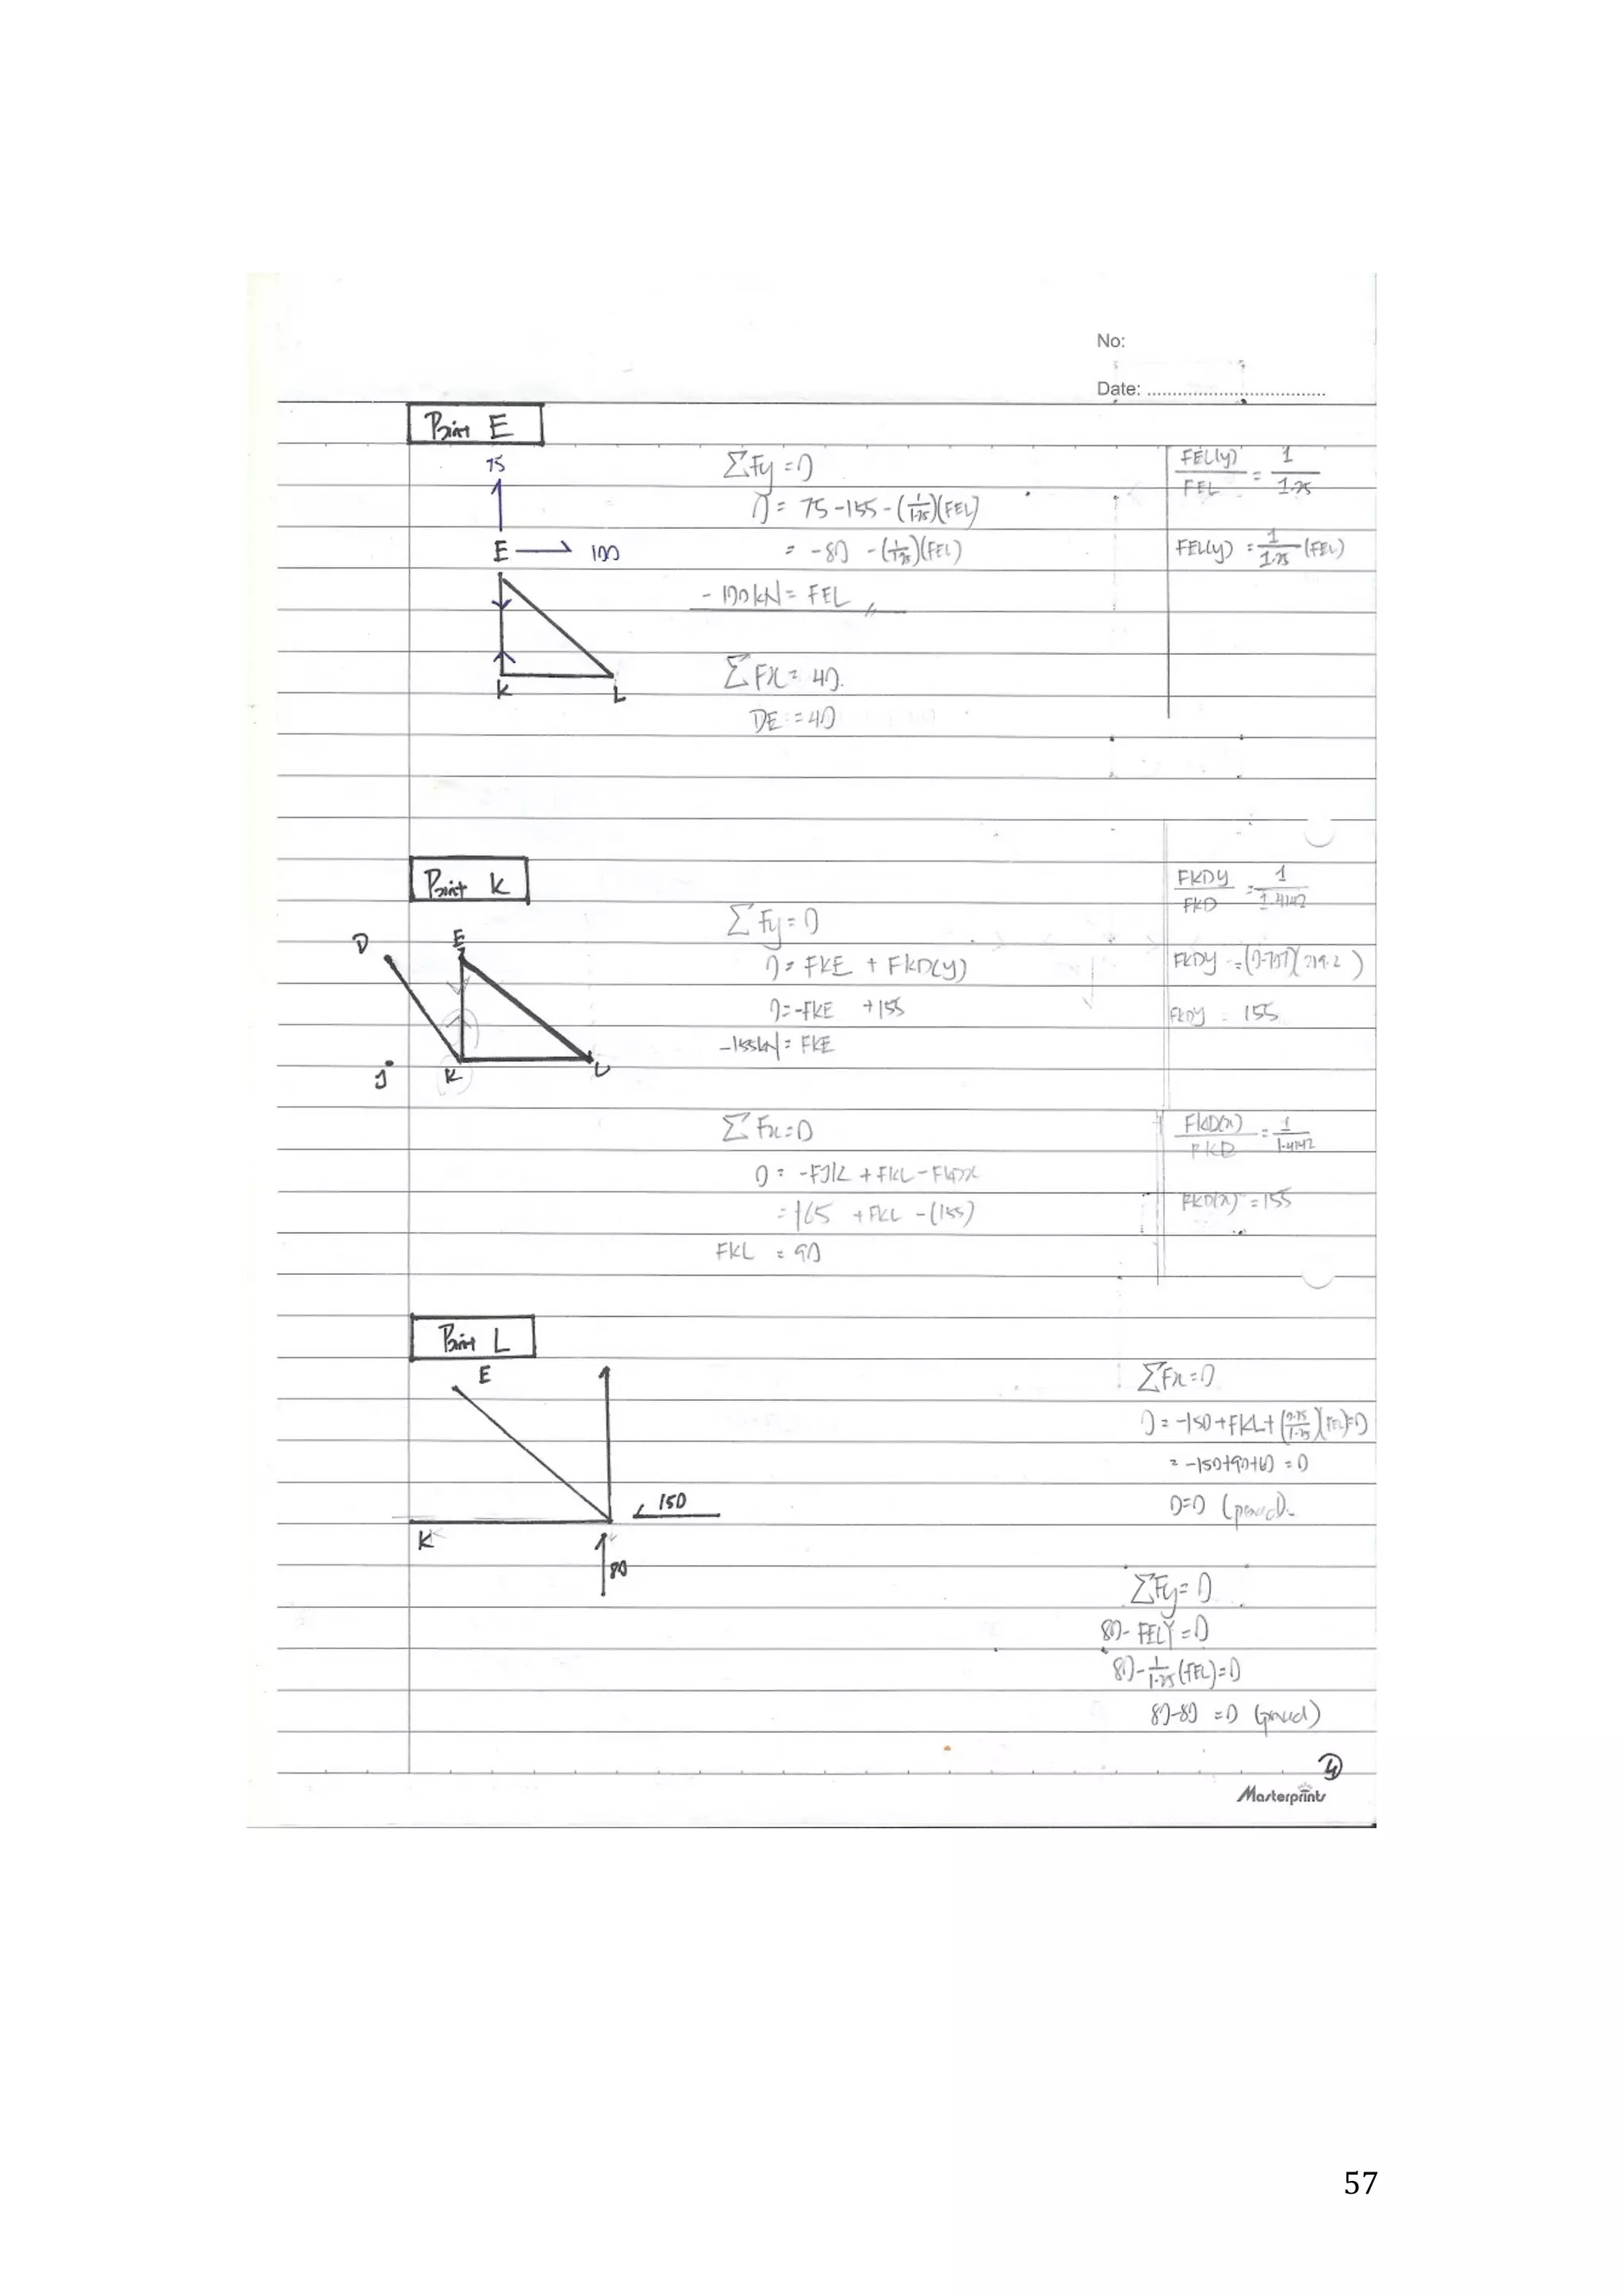 No:
Date: ................................
Point E
75
E → 100
K
L
ΣFy = 0
0 = 75 - 155 - (1/1.25)(FEL)
= -80 - (1/1.25)(FEL)
- 100kN = FEL //
ΣFx = 40.
DE = 40
FEL(y)/FEL = 1/1.25
FEL(y) = 1/1.25 (FEL)
Point K
D
E
J
K
L
ΣFy = 0
0 = FKE + FKD(y)
0 = -FKE + 155
-155kN = FKE
ΣFx = 0
0 = -FJK + FKL - FKDx
= 165 + FKL - (155)
FKL = 90
FKDY/FKD = 1/1.4142
FKDY = (0.707)(219.2)
FKDY = 155
FKD(x)/FKD = 1/1.4142
FKD(x) = 155
Point L
E
K
150
80
ΣFx = 0
0 = -150 + FKL + (0.75/1.25)(FEL) = 0
= -150+90+60 = 0
0=0 (proved).
ΣFy = 0
80 - FELY = 0
80 - 1/1.25 (FEL) = 0
80-80 = 0 (proved)
4
Masterprints
57